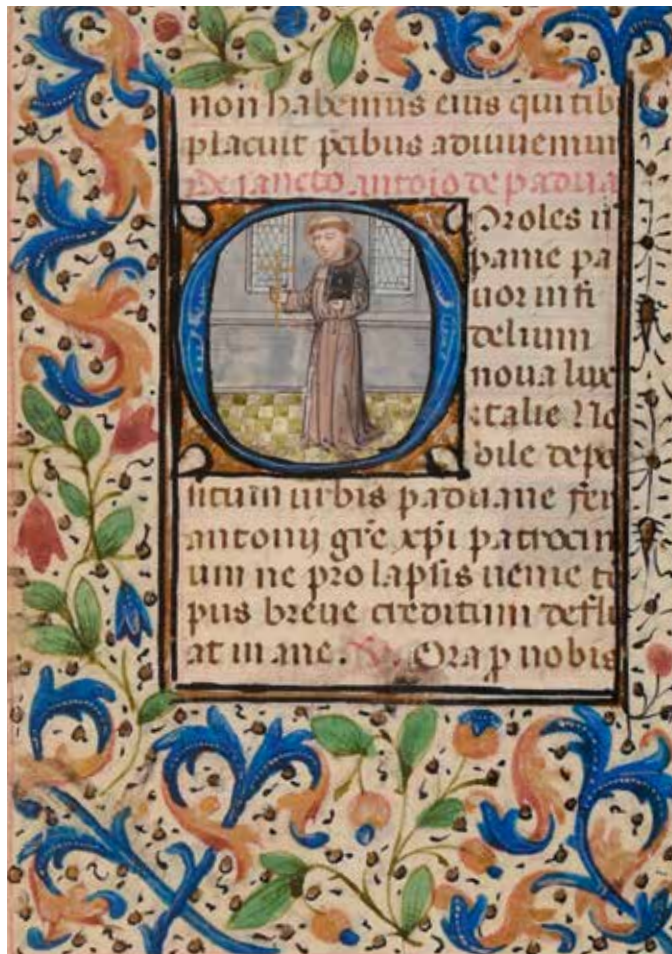 non habemus eius qui tibi
placuit p̄cibus adiuuemur
De sancto antoio de padua
O Proles is
panie pa
uor infi
delium
noua lux
ytalie No
bile depo
situm urbis paduane fer
antonij grē xp̄i patrocin
um ne prolapsis uenie te
pus breue creditum deflu
at inane. V. Ora p nobis